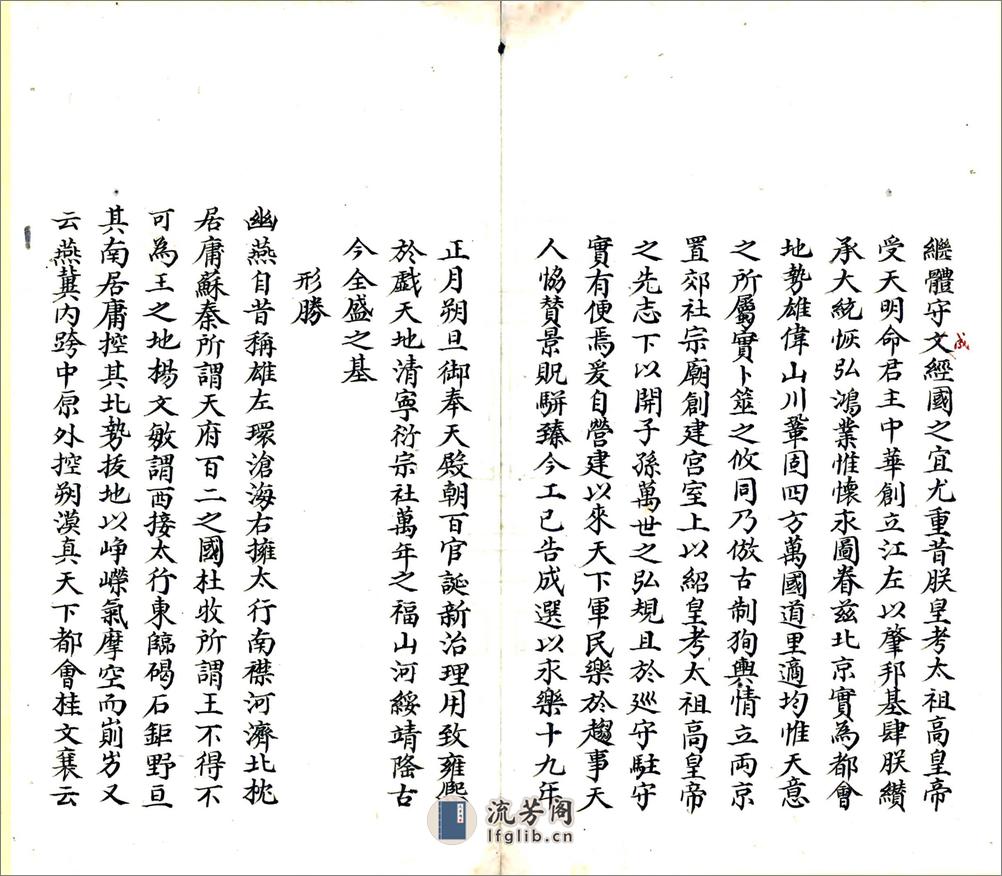 繼體守文經國之宜尤重昔朕皇考太祖高皇帝
成
受天明命君主中華創立江左以肇邦基肆朕纘
承大統恢弘鴻業惟懷永圖眷茲北京實為都會
地勢雄偉山川鞏固四方萬國道里適均惟天意
之所屬實卜筮之攸同乃倣古制狥輿情立両京
置郊社宗廟創建宮室上以紹皇考太祖高皇帝
之先志下以開子孫萬世之弘規且於巡守駐守
實有便焉爰自營建以來天下軍民樂於趨事天
人恊賛景貺駢臻今工已告成選以永樂十九年
正月朔旦御奉天殿朝百官誕新治理用致雍熈
於戲天地清寧衍宗社萬年之福山河綏靖隆古
今全盛之基
形勝
幽燕自昔稱雄左環滄海右擁太行南襟河濟北枕
居庸蘇秦所謂天府百二之國杜牧所謂王不得不
可為王之地楊文敏謂西接太行東臨碣石鉅野亘
其南居庸控其北勢拔地以崢嶸氣摩空而崱屴又
云燕冀內跨中原外控朔漠真天下都會桂文襄云
流芳阁
lfglib.cn